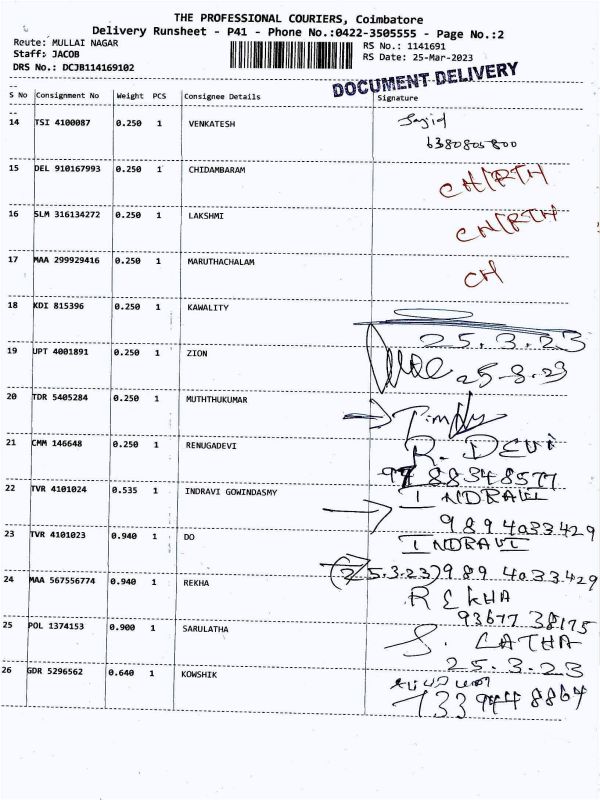 THE PROFESSIONAL COURIERS, Coimbatore
Delivery Runsheet - P41 - Phone No.:0422-3505555 - Page No.:2
Reute: MULLAI NAGAR
Staff: JACOB
DRS No.: DCJB114169102
RS No.: 1141691
RS Date: 25-Mar-2023
DOCUMENT DELIVERY
S No Consignment No Weight PCS Consignee Details Signature
14 TSI 4100087 0.250 1 VENKATESH Sajid
6380805800
15 DEL 910167993 0.250 1 CHIDAMBARAM CH/RTH
16 SLM 316134272 0.250 1 LAKSHMI CH/RTH
17 MAA 299929416 0.250 1 MARUTHACHALAM CH
18 KDI 815396 0.250 1 KAWALITY
25.3.23
19 UPT 4001891 0.250 1 ZION
25-3-23
20 TDR 5405284 0.250 1 MUTHTHUKUMAR
21 CMM 146648 0.250 1 RENUGADEVI R. DEVI
9788348577
22 TVR 4101024 0.535 1 INDRAVI GOWINDASMY INDRAVI
9894033429
23 TVR 4101023 0.940 1 DO INDRAVI
(25.3.23) 989 4033429
24 MAA 567556774 0.940 1 REKHA REKHA
93677 38175
25 POL 1374153 0.900 1 SARULATHA S. LATHA
25.3.23
26 GDR 5296562 0.640 1 KOWSHIK
7339448864